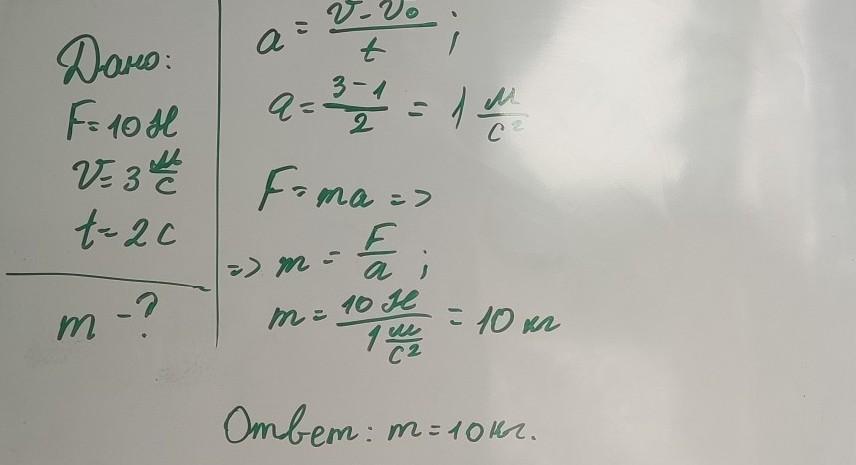 Дано:
F=10Н
V=3 м/с
t=2с
m-?
a = (v-v₀)/t ;
a = (3-1)/2 = 1 м/с²
F=ma =>
=> m = F/a ;
m = 10Н/(1 м/с²) = 10 кг
Ответ: m=10кг.